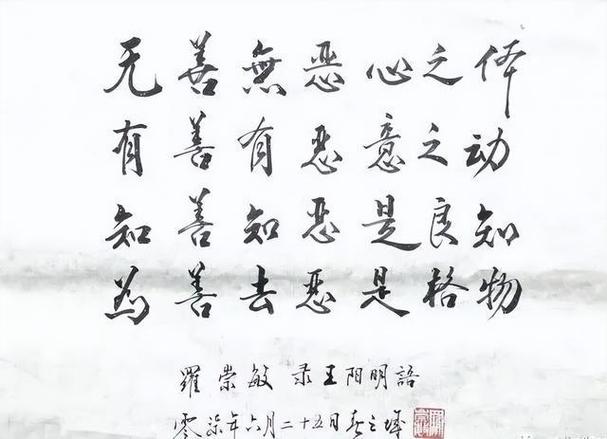 无善無恶心之体
有善有恶意之动
知善知恶是良知
為善去恶是格物
羅崇敏 录王阳明語
零柒年六月二十五日於之城